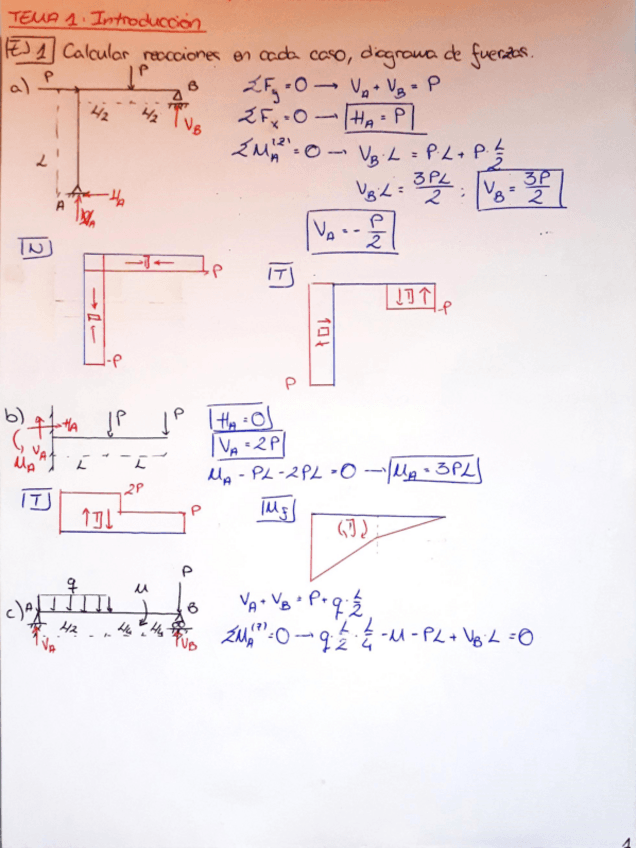 TEMA 1. Introducción
EJ 1 Calcular reacciones en cada caso, diagrama de fuerzas.
a) P P B
L/2 L/2 V_B
L
A H_A V_A
ΣF_y = 0 → V_A + V_B = P
ΣF_x = 0 → H_A = P
ΣM_A^(z) = 0 → V_B·L = P·L + P·L/2
V_B·L = 3PL/2 ; V_B = 3P/2
V_A = -P/2
N P -P
T -P P
b) P P
H_A V_A M_A L L
H_A = 0
V_A = 2P
M_A - PL - 2PL = 0 → M_A = 3PL
T 2P P
M_f
c) A q M P B
V_A L/2 L/4 L/4 V_B
V_A + V_B = P + q·L/2
ΣM_A^(z) = 0 → q·L/2·L/4 - M - PL + V_B·L = 0
1